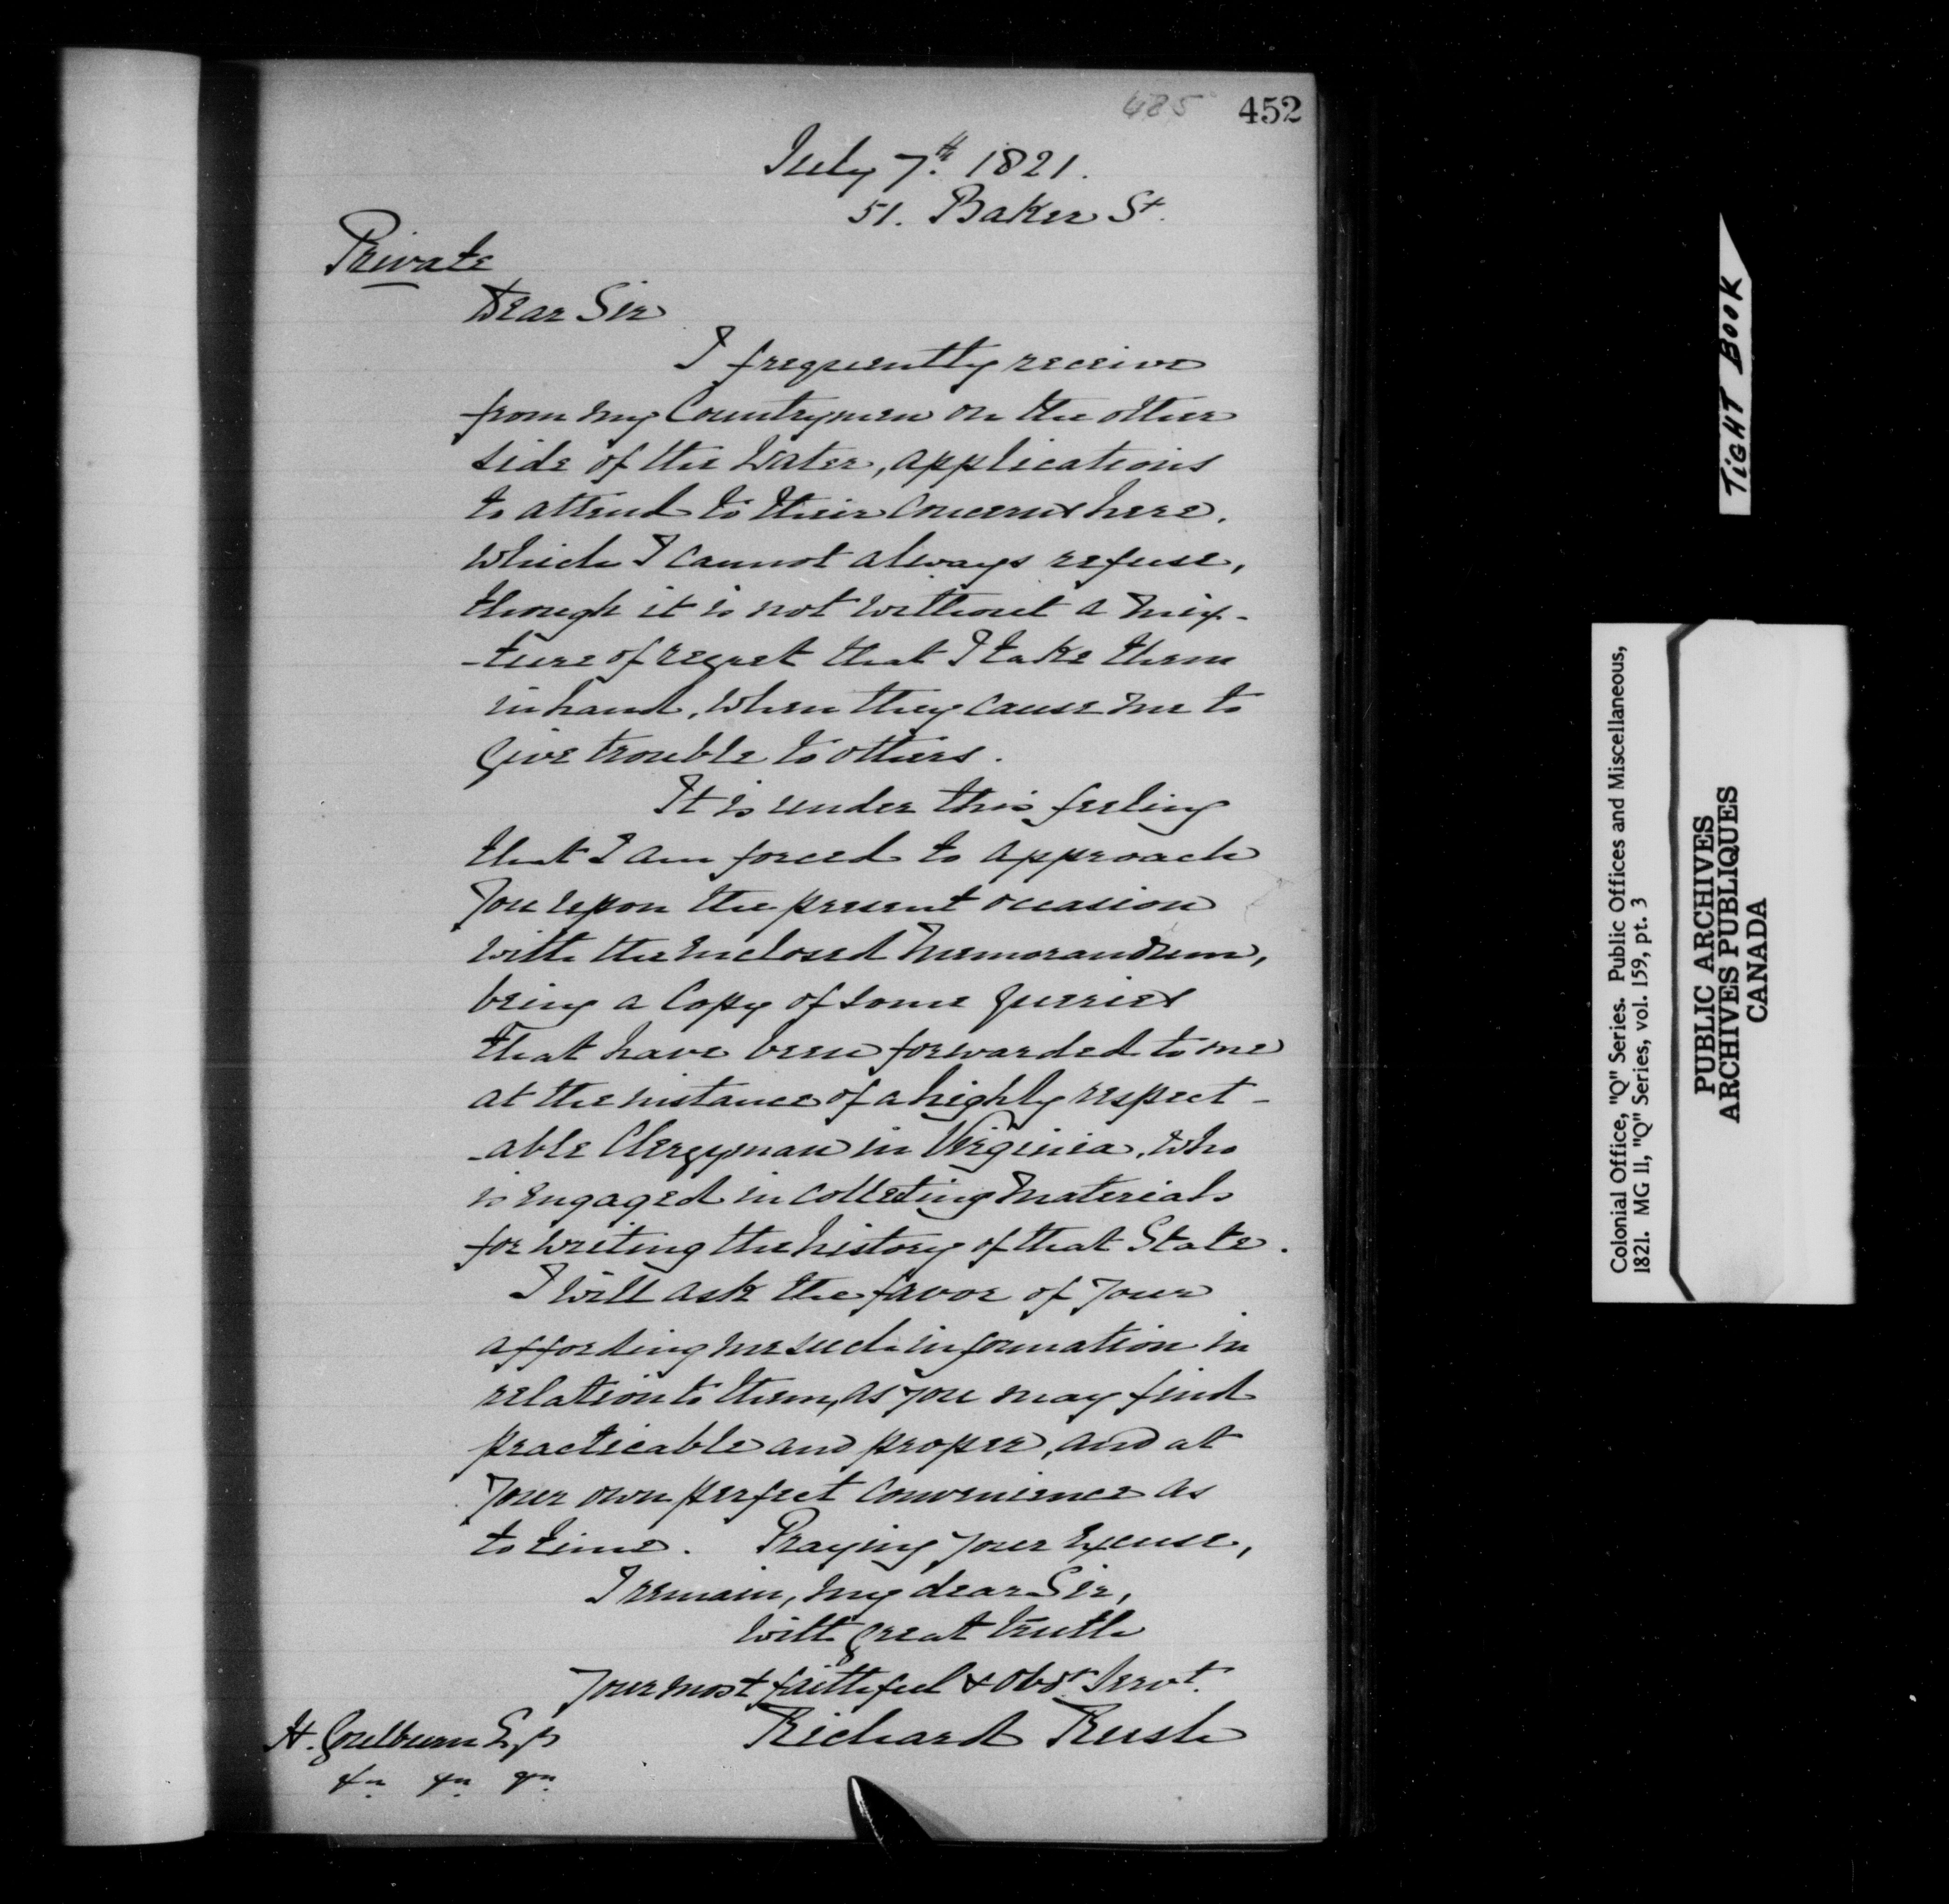 485 452
July 7th. 1821.
51. Baker St.
Private
Dear Sir
I frequently receive
from my Countrymen on the other
side of the Water, applications
to attend to their concerns here,
which I cannot always refuse,
though it is not without a mix-
-ture of regret that I take them
in hand, when they cause me to
give trouble to others.
It is under this feeling
that I am forced to approach
you upon the present occasion
with the inclosed memorandum,
being a copy of some queries
that have been forwarded to me
at the instance of a highly respect-
-able Clergyman in Virginia, who
is engaged in collecting materials
for writing the history of that State.
I will ask the favor of your
affording me such information in
relation to them, as you may find
practicable and proper, and at
your own perfect convenience as
to time. Praying your excuse,
I remain, my dear Sir,
with great truth
Your most faithful & Obdt. Servt.
Richard Rush
H. Goulburn Esq
&c. &c. &c.
TIGHT BOOK
Colonial Office, "Q" Series. Public Offices and Miscellaneous,
1821. MG 11, "Q" Series, vol. 159, pt. 3
PUBLIC ARCHIVES
ARCHIVES PUBLIQUES
CANADA